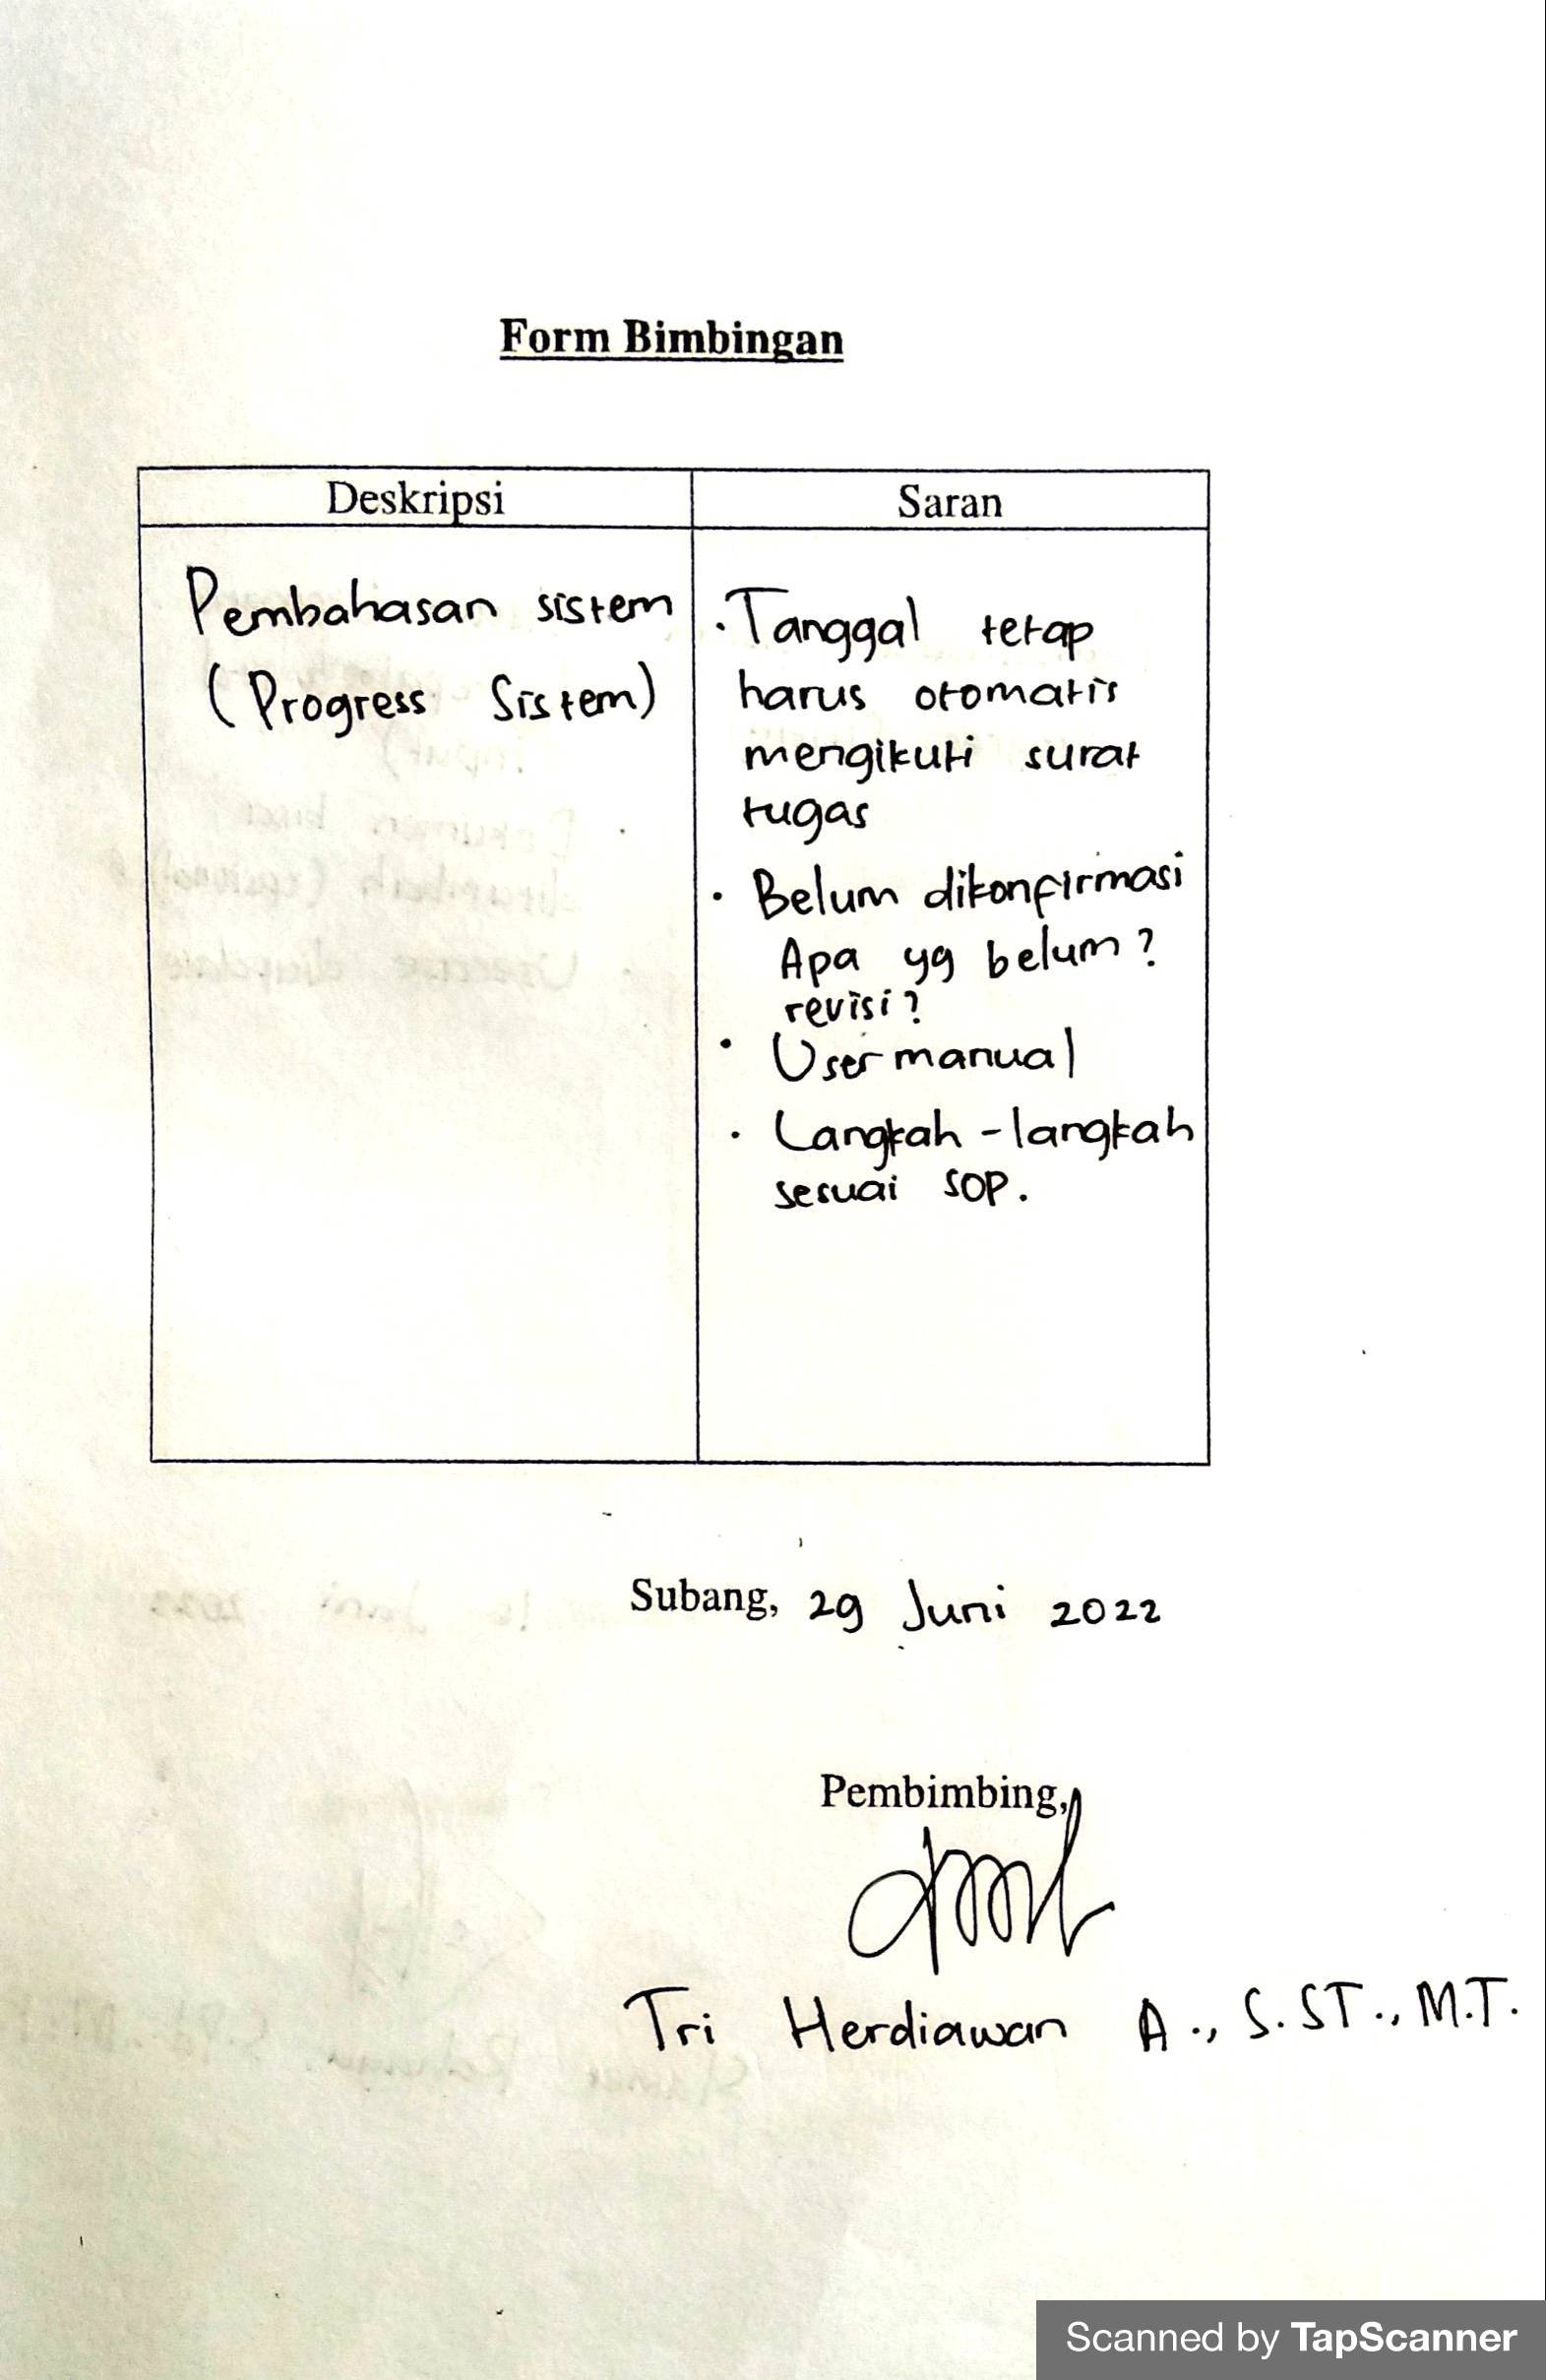 Form Bimbingan
Deskripsi
Saran
Pembahasan sistem
(Progress Sistem)
• Tanggal tetap
harus otomatis
mengikuti surat
tugas
• Belum dikonfirmasi
Apa yg belum?
revisi?
• User manual
• Langkah - langkah
sesuai SOP.
Subang, 29 Juni 2022
Pembimbing,
Tri Herdiawan A., S.ST., M.T.
Scanned by TapScanner